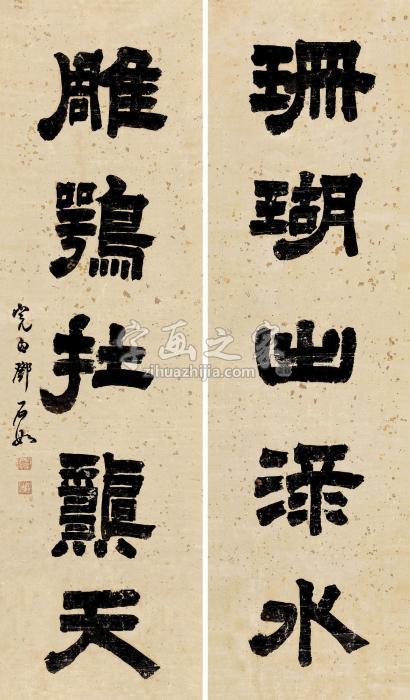 珊瑚出深水
雕鶚扗天
完白鄧石如
字画之家
zihuazhijia.com